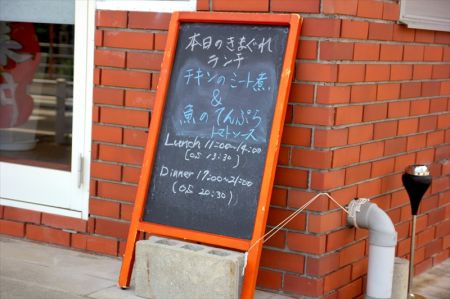 本日のきまぐれ
ランチ
チキンのミート煮
&
魚のてんぷら
トマトソース
Lunch 11:00~14:00
(OS 13:30)
Dinner 17:00~21:00
(OS 20:30)